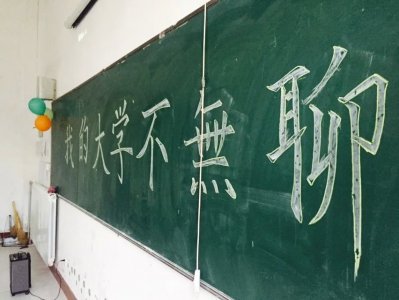 我的大学不無聊